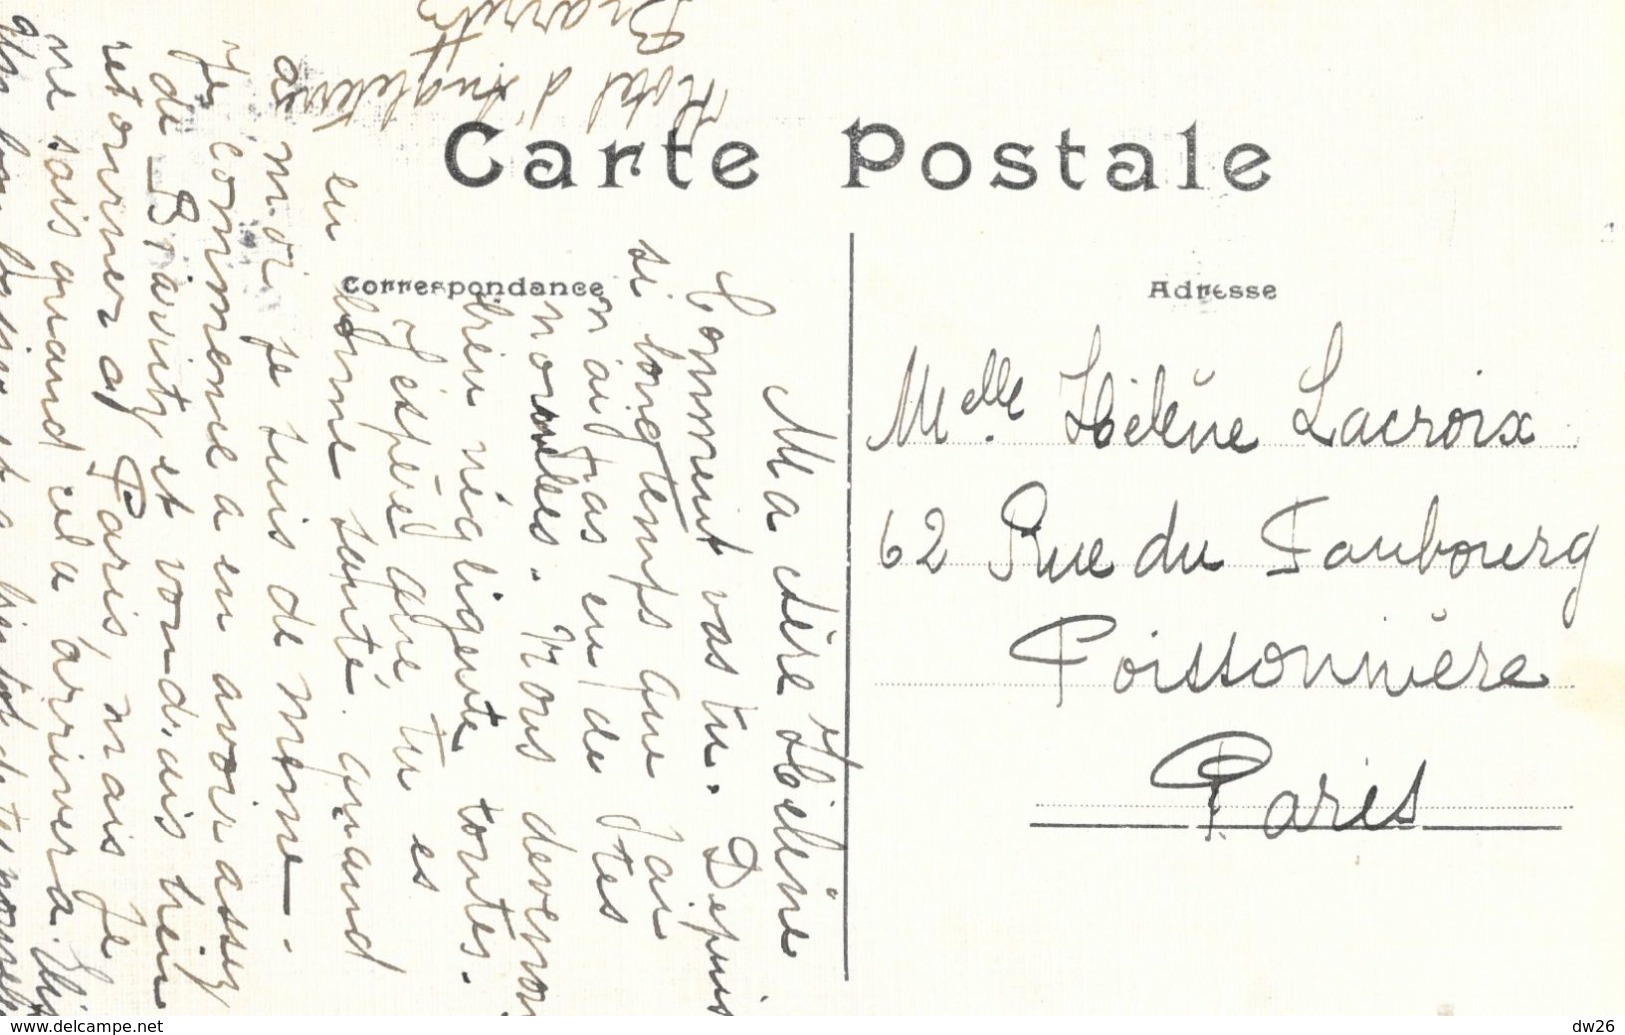 Carte Postale
Correspondance
Adresse
Melle Hélène Lacroix
62 Rue du Faubourg
Poissonnière
Paris
Ma chère Hélène
Comment vas tu. Depuis
si longtemps que j'ai
n'ai pas eu de tes
nouvelles. Nous devenons
bien négligente toutes.
J'espère que, tu es
en bonne santé. quand
à moi je suis de même.
Je commence a en avoir assez
de Biarritz et voudrais bien
retourner a Paris, mais je
ne sais quand cela arrivera.
Un bon baiser et a bientôt de tes nouvelles
Hôtel d'Angleterre
Biarritz
www.delcampe.net
dw26